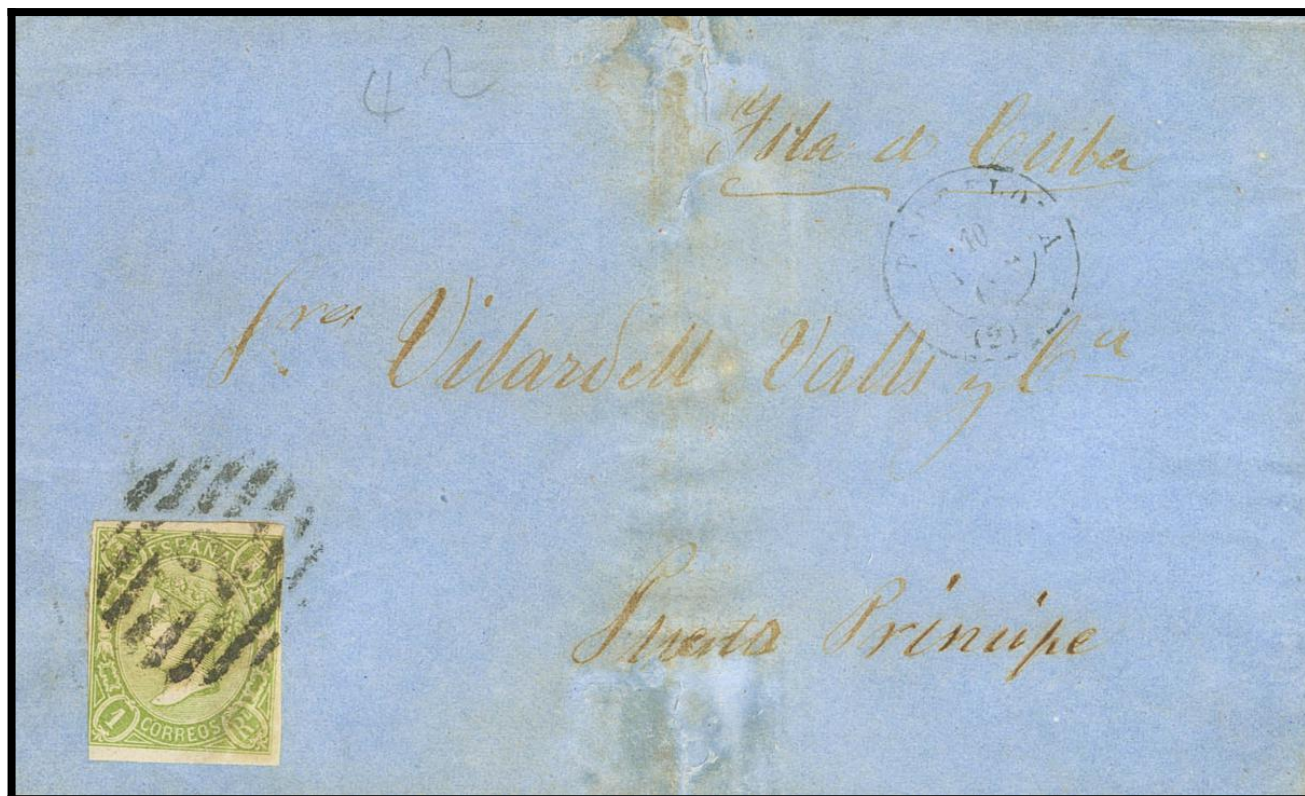 42
Isla de Cuba
BARCELONA
10
(2)
Sres Vilardell Valls y Ca
Puerto Principe
ESPAÑA
1 CORREOS RL